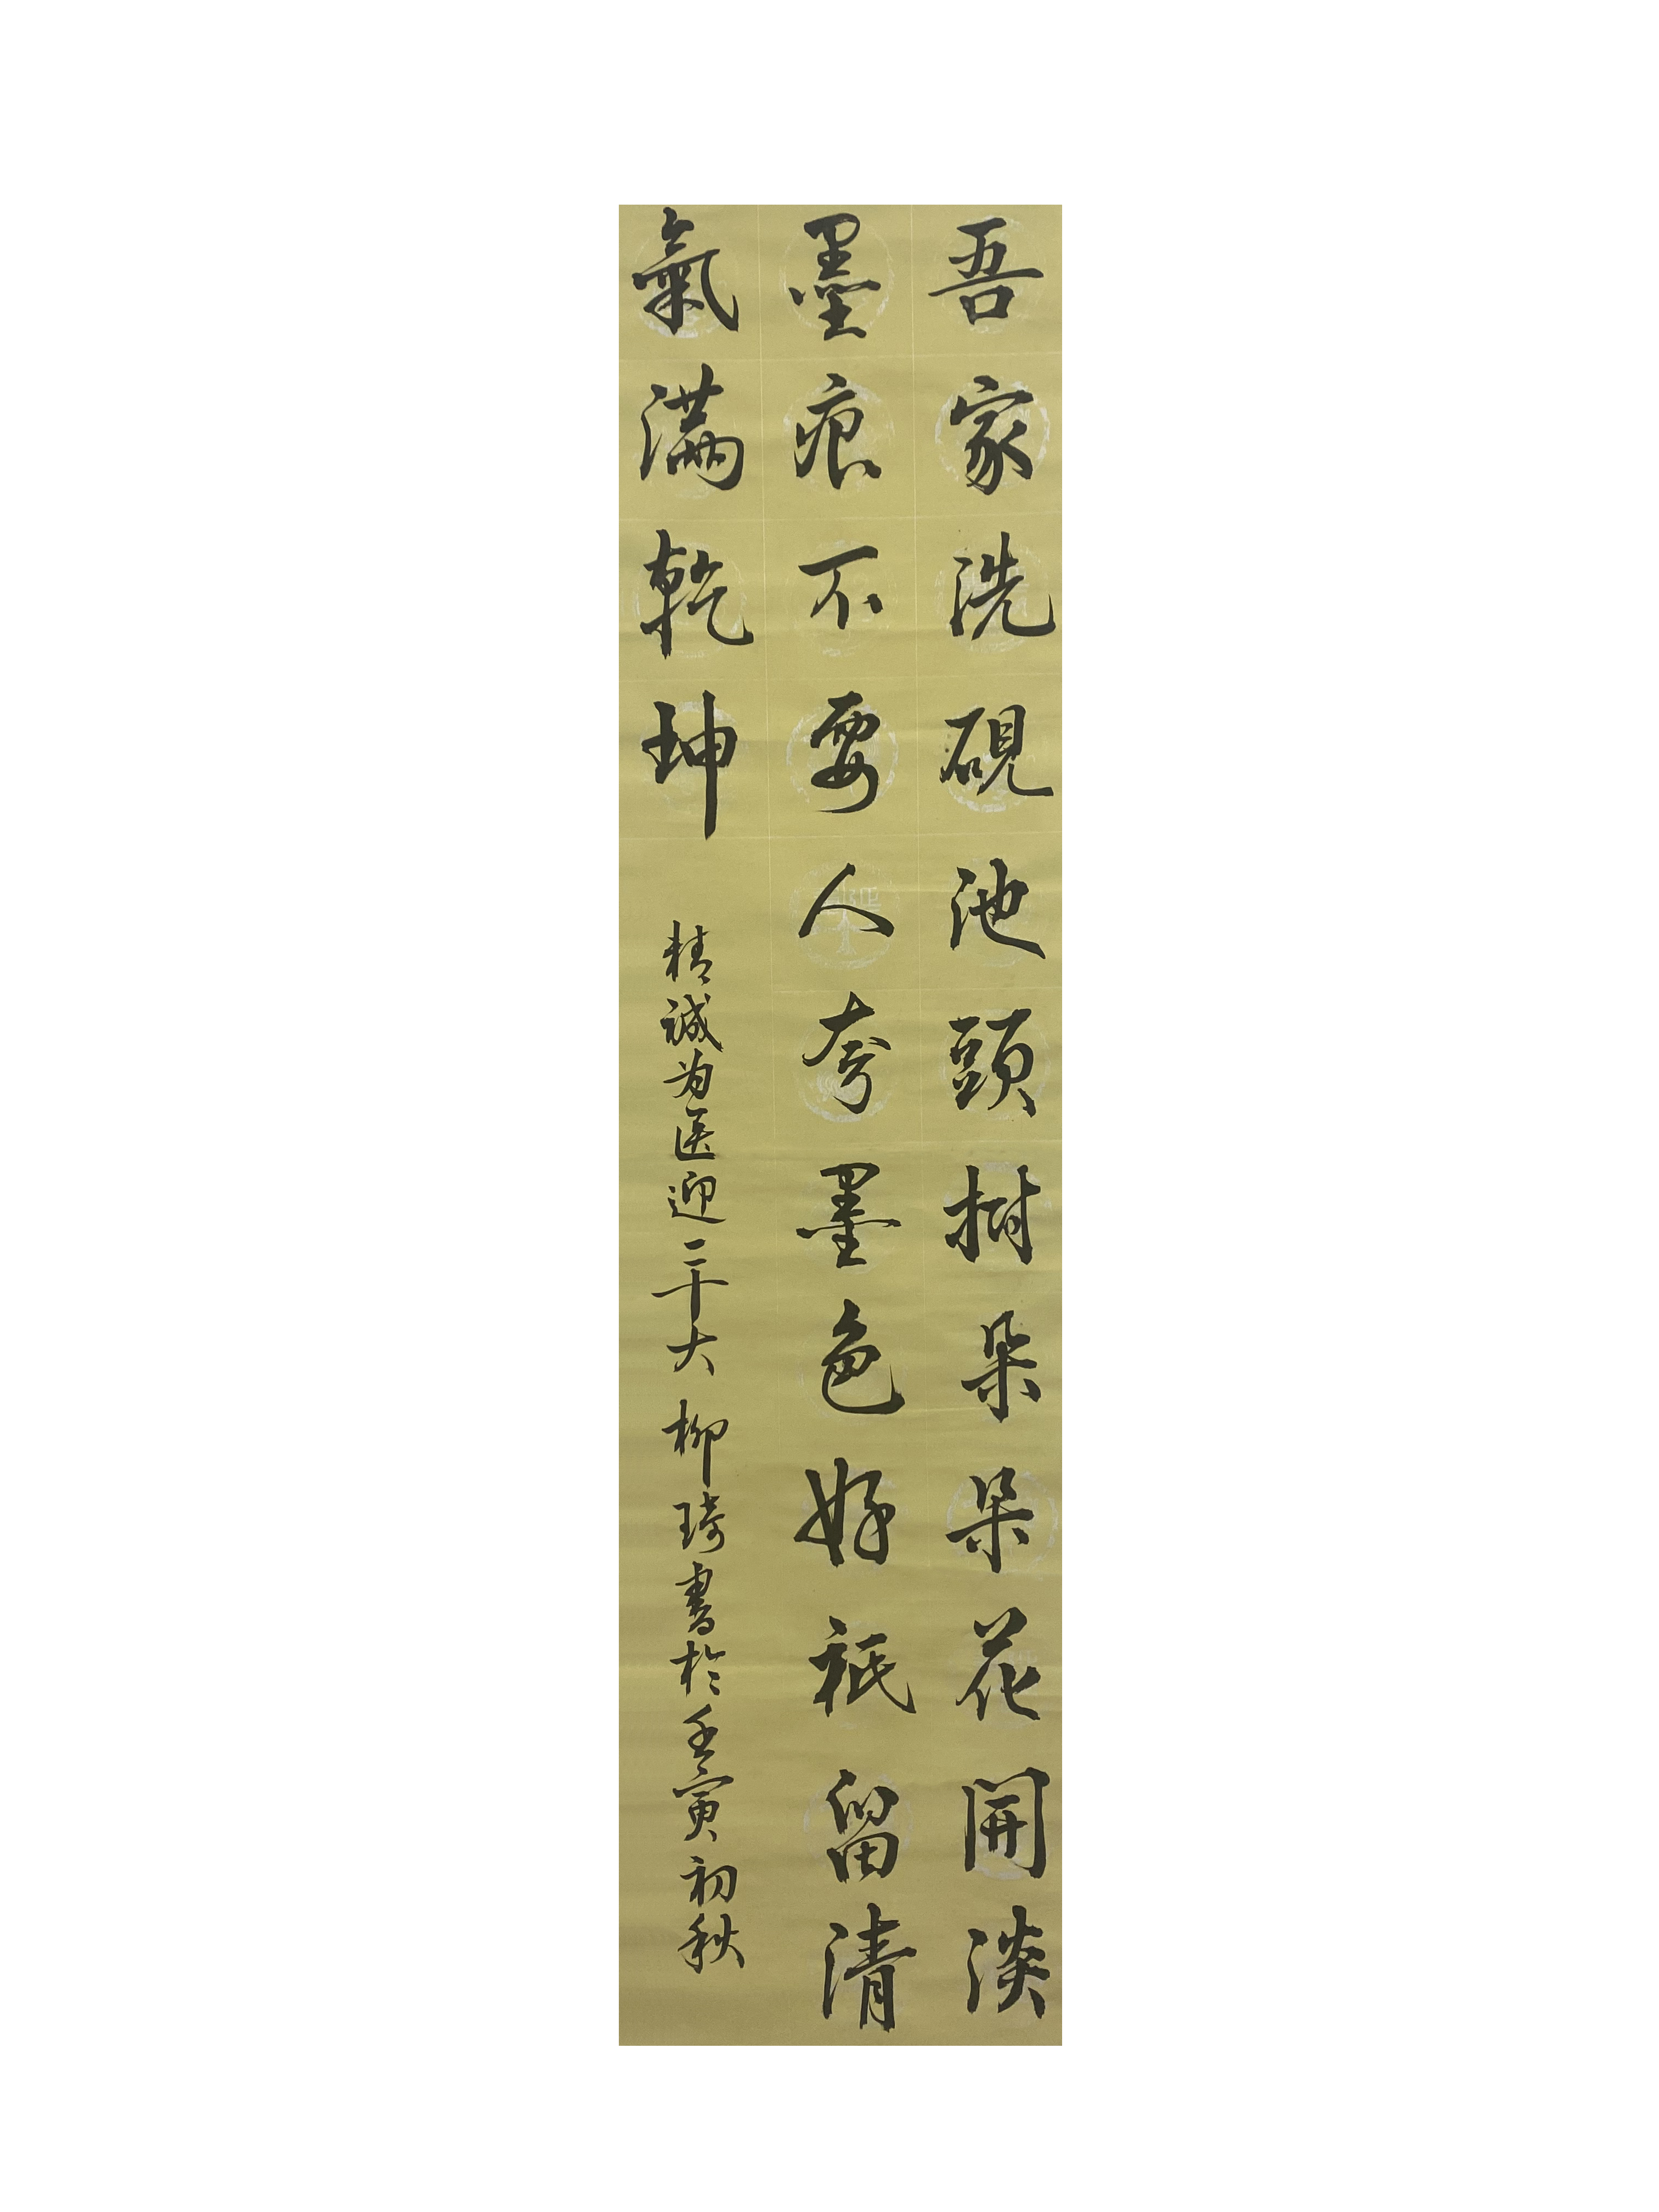 吾家洗硯池頭樹朵朵花開淡
墨痕不要人夸墨色好祇留清
氣滿乾坤
精誠为医迎二十大 柳琦書於壬寅初秋